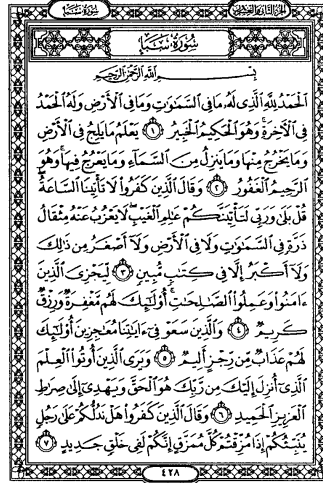 الجزء الثاني والعشرون سورة سبأ
سورة سبأ
بسم الله الرحمن الرحيم
ٱلۡحَمۡدُ لِلَّهِ ٱلَّذِي لَهُۥ مَا فِي ٱلسَّمَٰوَٰتِ وَمَا فِي ٱلۡأَرۡضِ وَلَهُ ٱلۡحَمۡدُ
فِي ٱلۡأٓخِرَةِۚ وَهُوَ ٱلۡحَكِيمُ ٱلۡخَبِيرُ ١ يَعۡلَمُ مَا يَلِجُ فِي ٱلۡأَرۡضِ
وَمَا يَخۡرُجُ مِنۡهَا وَمَا يَنزِلُ مِنَ ٱلسَّمَآءِ وَمَا يَعۡرُجُ فِيهَاۚ وَهُوَ
ٱلرَّحِيمُ ٱلۡغَفُورُ ٢ وَقَالَ ٱلَّذِينَ كَفَرُواْ لَا تَأۡتِينَا ٱلسَّاعَةُۖ
قُلۡ بَلَىٰ وَرَبِّي لَتَأۡتِيَنَّكُمۡ عَٰلِمِ ٱلۡغَيۡبِۖ لَا يَعۡزُبُ عَنۡهُ مِثۡقَالُ
ذَرَّةٖ فِي ٱلسَّمَٰوَٰتِ وَلَا فِي ٱلۡأَرۡضِ وَلَآ أَصۡغَرُ مِن ذَٰلِكَ
وَلَآ أَكۡبَرُ إِلَّا فِي كِتَٰبٖ مُّبِينٖ ٣ لِّيَجۡزِيَ ٱلَّذِينَ
ءَامَنُواْ وَعَمِلُواْ ٱلصَّٰلِحَٰتِۚ أُوْلَٰٓئِكَ لَهُم مَّغۡفِرَةٞ وَرِزۡقٞ
كَرِيمٞ ٤ وَٱلَّذِينَ سَعَوۡ فِيٓ ءَايَٰتِنَا مُعَٰجِزِينَ أُوْلَٰٓئِكَ
لَهُمۡ عَذَابٞ مِّن رِّجۡزٍ أَلِيمٞ ٥ وَيَرَى ٱلَّذِينَ أُوتُواْ ٱلۡعِلۡمَ
ٱلَّذِيٓ أُنزِلَ إِلَيۡكَ مِن رَّبِّكَ هُوَ ٱلۡحَقَّ وَيَهۡدِيٓ إِلَىٰ صِرَٰطِ
ٱلۡعَزِيزِ ٱلۡحَمِيدِ ٦ وَقَالَ ٱلَّذِينَ كَفَرُواْ هَلۡ نَدُلُّكُمۡ عَلَىٰ رَجُلٖ
يُنَبِّئُكُمۡ إِذَا مُزِّقۡتُمۡ كُلَّ مُمَزَّقٍ إِنَّكُمۡ لَفِي خَلۡقٖ جَدِيدٍ ٧
٤٢٨